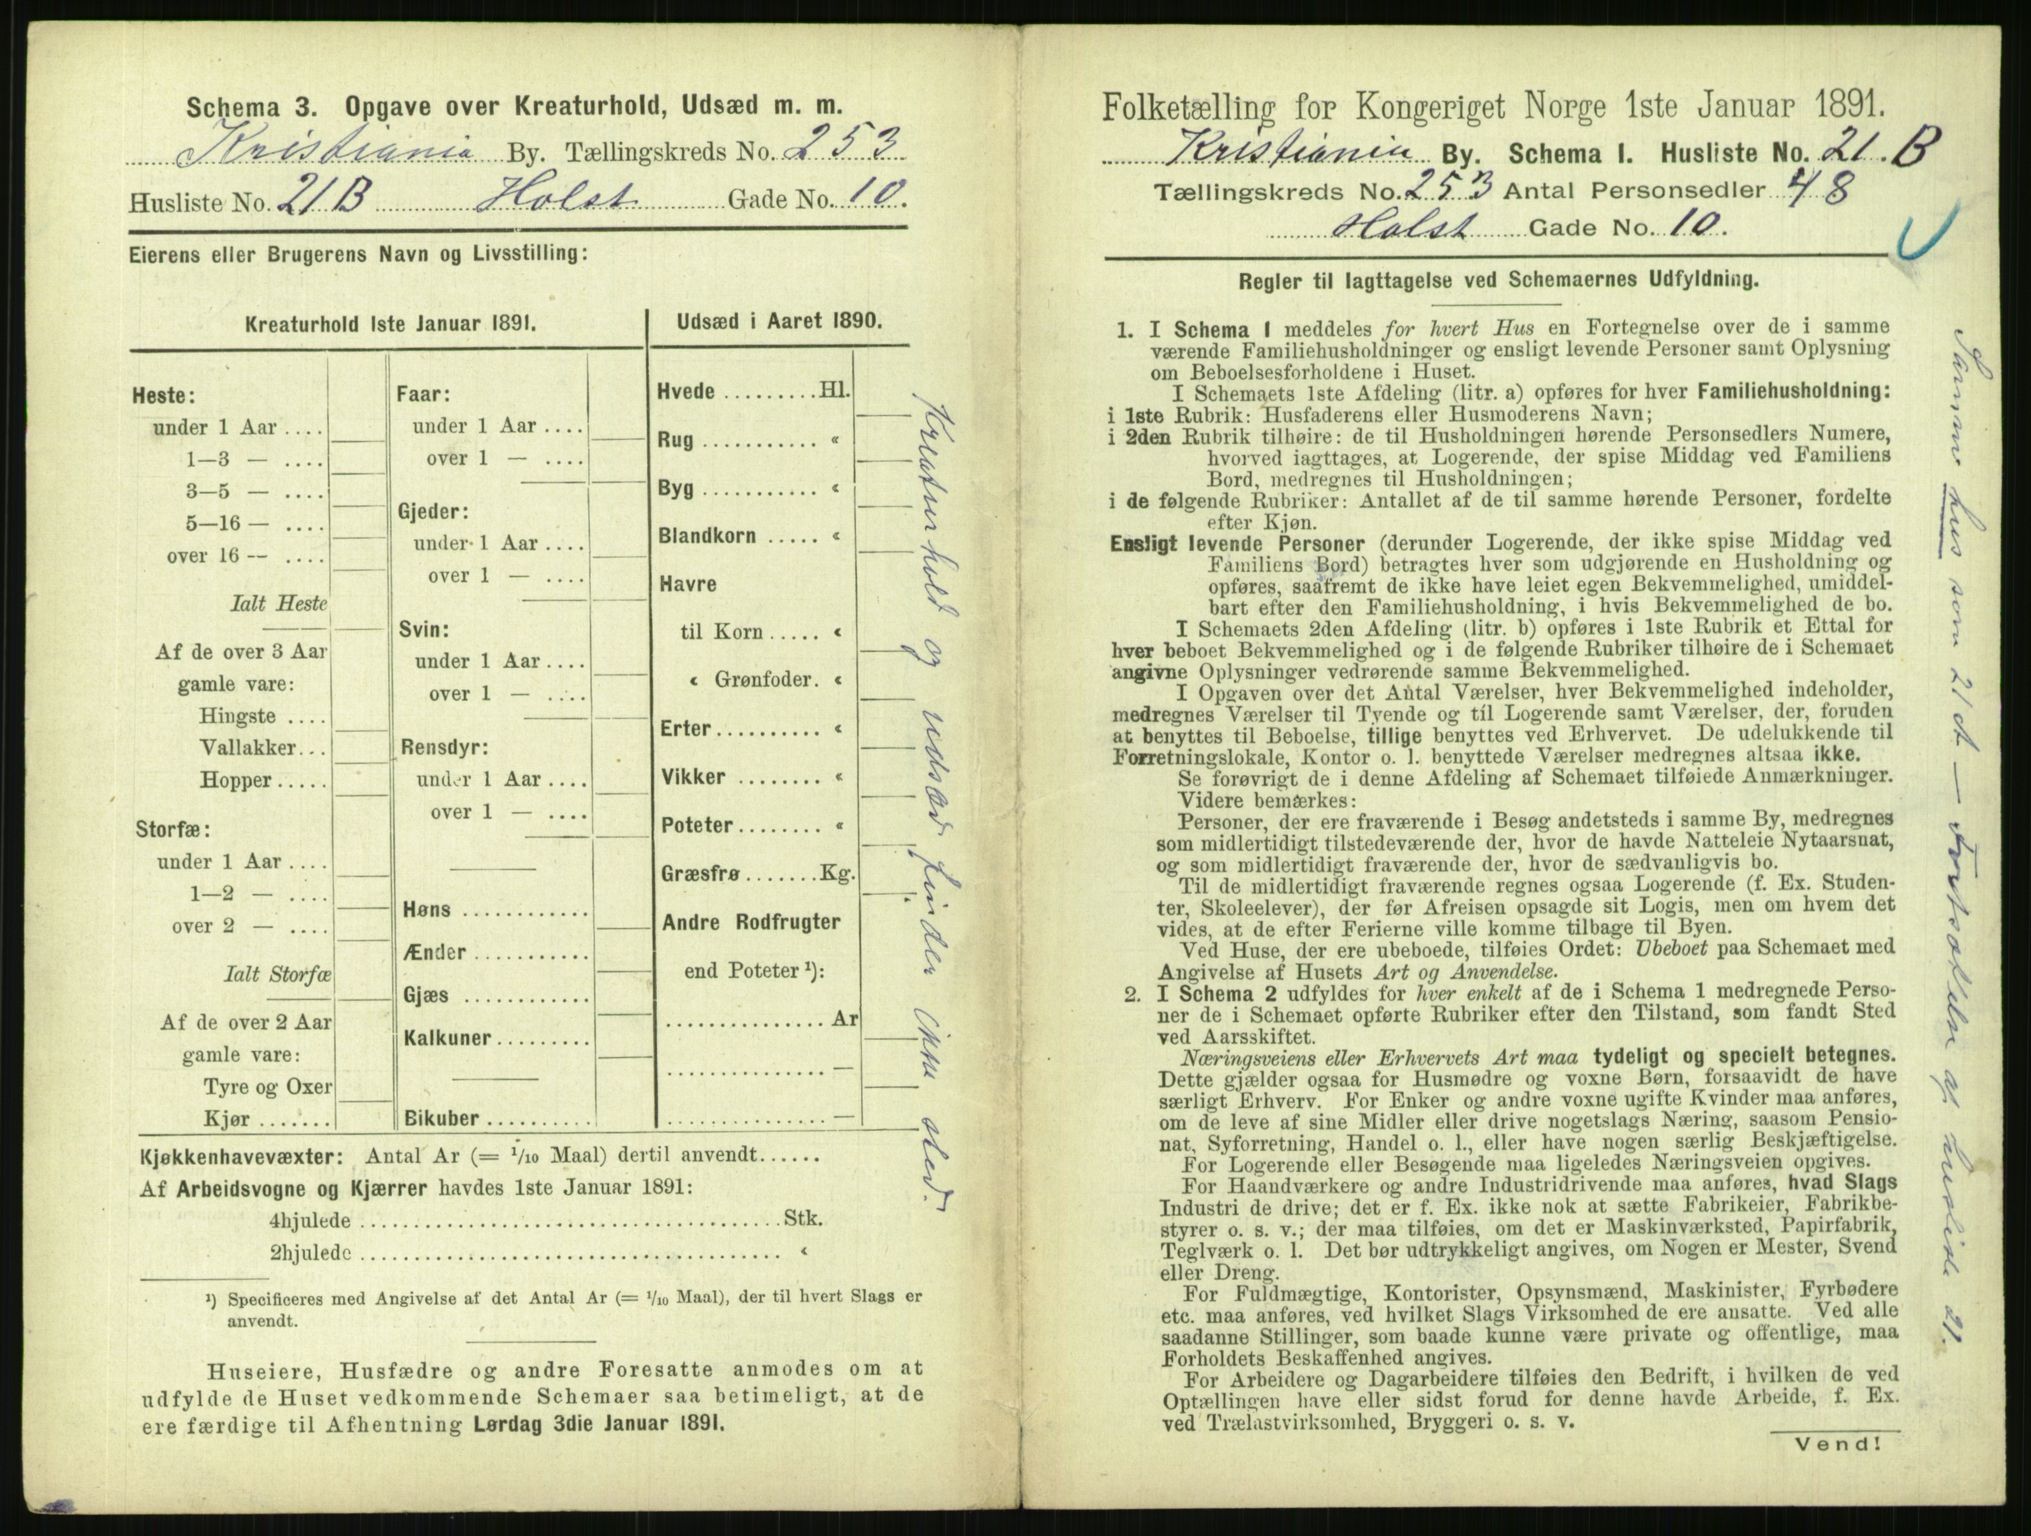 Schema 3. Opgave over Kreaturhold, Udsæd m. m.
Kristiania By. Tællingskreds No. 253
Husliste No. 21 B Holst Gade No. 10.
Eierens eller Brugerens Navn og Livsstilling:
Kreaturhold 1ste Januar 1891.
Heste:
under 1 Aar ....
1—3 — ....
3—5 — ....
5—16 — ....
over 16 — ....
Ialt Heste
Af de over 3 Aar
gamle vare:
Hingste ....
Vallakker...
Hopper.....
Storfæ:
under 1 Aar ....
1—2 — ....
over 2 — ....
Ialt Storfæ
Af de over 2 Aar
gamle vare:
Tyre og Oxer
Kjør.......
Faar:
under 1 Aar ....
over 1 — ....
Gjeder:
under 1 Aar ....
over 1 — ....
Svin:
under 1 Aar ....
over 1 — ....
Rensdyr:
under 1 Aar ....
over 1 — ....
Høns ............
Ænder...........
Gjæs ............
Kalkuner.........
Bikuber..........
Udsæd i Aaret 1890.
Hvede .........Hl.
Rug ........... «
Byg ........... «
Blandkorn ..... «
Havre
til Korn ..... «
« Grønfoder. «
Erter.......... «
Vikker ........ «
Poteter........ «
Græsfrø .......Kg.
Andre Rodfrugter
end Poteter ¹):
...............Ar
............... —
............... —
Kreaturhold og udsæd finder ikke sted.
Kjøkkenhavevæxter: Antal Ar (= 1/10 Maal) dertil anvendt......
Af Arbeidsvogne og Kjærrer havdes 1ste Januar 1891:
4hjulede ........................................Stk.
2hjulede ........................................ «
¹) Specificeres med Angivelse af det Antal Ar (= 1/10 Maal), der til hvert Slags er
anvendt.
Huseiere, Husfædre og andre Foresatte anmodes om at
udfylde de Huset vedkommende Schemaer saa betimeligt, at de
ere færdige til Afhentning Lørdag 3die Januar 1891.
Folketælling for Kongeriget Norge 1ste Januar 1891.
Kristiania By. Schema I. Husliste No. 21. B
Tællingskreds No. 253 Antal Personsedler 48
Holst Gade No. 10.
Regler til Iagttagelse ved Schemaernes Udfyldning.
1. I Schema 1 meddeles for hvert Hus en Fortegnelse over de i samme
værende Familiehusholdninger og ensligt levende Personer samt Oplysning
om Beboelsesforholdene i Huset.
I Schemaets 1ste Afdeling (litr. a) opføres for hver Familiehusholdning:
i 1ste Rubrik: Husfaderens eller Husmoderens Navn;
i 2den Rubrik tilhøire: de til Husholdningen hørende Personsedlers Numere,
hvorved iagttages, at Logerende, der spise Middag ved Familiens
Bord, medregnes til Husholdningen;
i de følgende Rubriker: Antallet af de til samme hørende Personer, fordelte
efter Kjøn.
Ensligt levende Personer (derunder Logerende, der ikke spise Middag ved
Familiens Bord) betragtes hver som udgjørende en Husholdning og
opføres, saafremt de ikke have leiet egen Bekvemmelighed, umiddel-
bart efter den Familiehusholdning, i hvis Bekvemmelighed de bo.
I Schemaets 2den Afdeling (litr. b) opføres i 1ste Rubrik et Ettal for
hver beboet Bekvemmelighed og i de følgende Rubriker tilhøire de i Schemaet
angivne Oplysninger vedrørende samme Bekvemmelighed.
I Opgaven over det Antal Værelser, hver Bekvemmelighed indeholder,
medregnes Værelser til Tyende og til Logerende samt Værelser, der, foruden
at benyttes til Beboelse, tillige benyttes ved Erhvervet. De udelukkende til
Forretningslokale, Kontor o. l. benyttede Værelser medregnes altsaa ikke.
Se forøvrigt de i denne Afdeling af Schemaet tilføiede Anmærkninger.
Videre bemærkes:
Personer, der ere fraværende i Besøg andetsteds i samme By, medregnes
som midlertidigt tilstedeværende der, hvor de havde Natteleie Nytaarsnat,
og som midlertidigt fraværende der, hvor de sædvanligvis bo.
Til de midlertidigt fraværende regnes ogsaa Logerende (f. Ex. Studen-
ter, Skoleelever), der før Afreisen opsagde sit Logis, men om hvem det
vides, at de efter Ferierne ville komme tilbage til Byen.
Ved Huse, der ere ubeboede, tilføies Ordet: Ubeboet paa Schemaet med
Angivelse af Husets Art og Anvendelse.
2. I Schema 2 udfyldes for hver enkelt af de i Schema 1 medregnede Perso-
ner de i Schemaet opførte Rubriker efter den Tilstand, som fandt Sted
ved Aarsskiftet.
Næringsveiens eller Erhvervets Art maa tydeligt og specielt betegnes.
Dette gjælder ogsaa for Husmødre og voxne Børn, forsaavidt de have
særligt Erhverv. For Enker og andre voxne ugifte Kvinder maa anføres,
om de leve af sine Midler eller drive nogetslags Næring, saasom Pensio-
nat, Syforretning, Handel o. l., eller have nogen særlig Beskjæftigelse.
For Logerende eller Besøgende maa ligeledes Næringsveien opgives.
For Haandværkere og andre Industridrivende maa anføres, hvad Slags
Industri de drive; det er f. Ex. ikke nok at sætte Fabrikeier, Fabrikbe-
styrer o. s. v.; der maa tilføies, om det er Maskinværksted, Papirfabrik,
Teglværk o. l. Det bør udtrykkeligt angives, om Nogen er Mester, Svend
eller Dreng.
For Fuldmægtige, Kontorister, Opsynsmænd, Maskinister, Fyrbødere
etc. maa anføres, ved hvilket Slags Virksomhed de ere ansatte. Ved alle
saadanne Stillinger, som baade kunne være private og offentlige, maa
Forholdets Beskaffenhed angives.
For Arbeidere og Dagarbeidere tilføies den Bedrift, i hvilken de ved
Optællingen have eller sidst forud for denne havde Arbeide, f. Ex.
ved Trælastvirksomhed, Bryggeri o. s. v.
Vend!
Samme hus som 21 A — Fortsættelse af husliste 21.